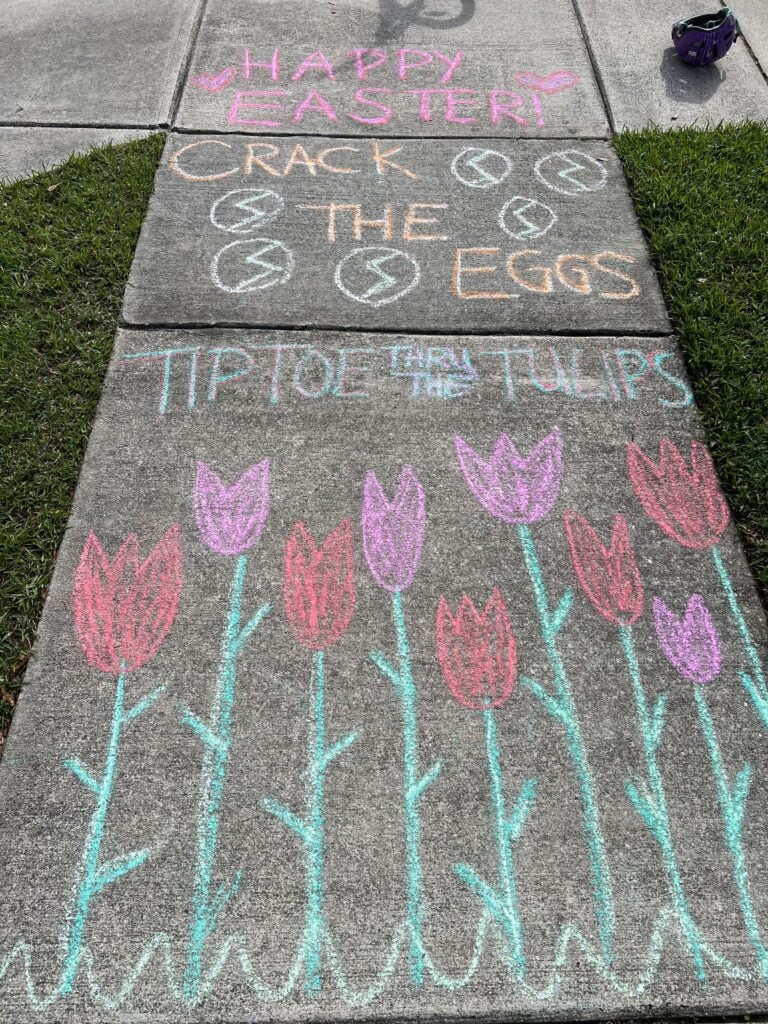 HAPPY
EASTER!
CRACK
THE
EGGS
TIPTOE THRU THE TULIPS